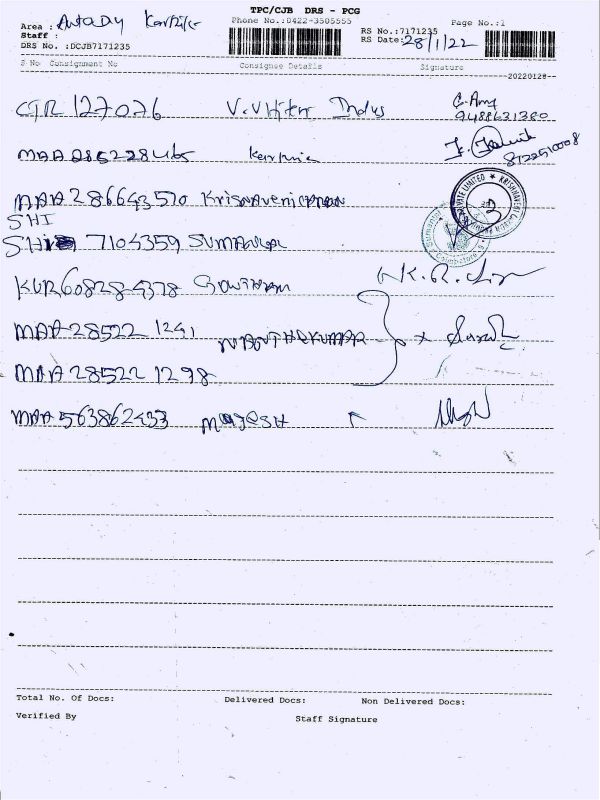 TPC/CJB DRS - PCG
Area : Antady Karthik
Phone No.:0422-3505555
Page No.:1
Staff :
RS No.:7171235
DRS No. :DCJB7171235
RS Date:28/1/22
S No Consignment No Consignee Details Signature
20220128
CJR 127076 V.V Hitex Indus
9488631380
MAA 285228465 Karthic
8122510008
MAA 286643510 Krisnaveni
SHI
SHI 7104359 SUMANGAL
KUR 608284378 GOWTHAM
MAA 28522 1241
MAA 28522 1298
MAA 563862433 MAJESH
Total No. Of Docs: Delivered Docs: Non Delivered Docs:
Verified By Staff Signature